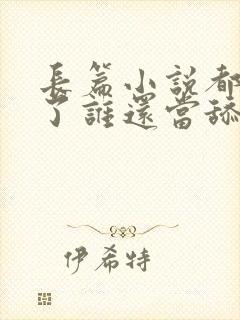 長篇小說都
了誰還當舔
伊希特